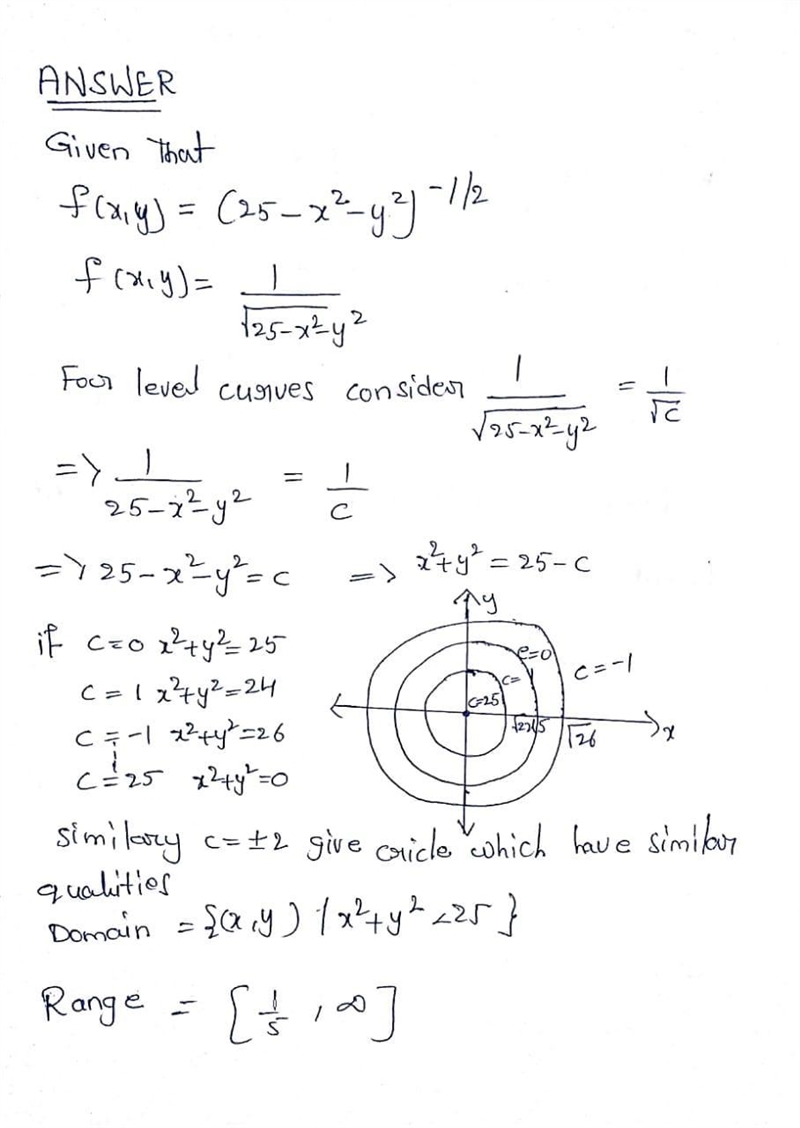 ANSWER
Given That
f(x,y) = (25-x²-y²)^-1/2
f(x,y) = 1/√25-x²-y²
For level curves consider 1/√25-x²-y² = 1/√c
=> 1/25-x²-y² = 1/c
=> 25-x²-y²=c => x²+y² = 25-c
if c=0 x²+y²=25
c=1 x²+y²=24
c=-1 x²+y²=26
c=25 x²+y²=0
y
c=0
c=-1
c=
c=25
5
√26
x
similary c=±2 give cricle which have similar
qualities
Domain = {(x,y) / x²+y² <25}
Range = [1/5, ∞]